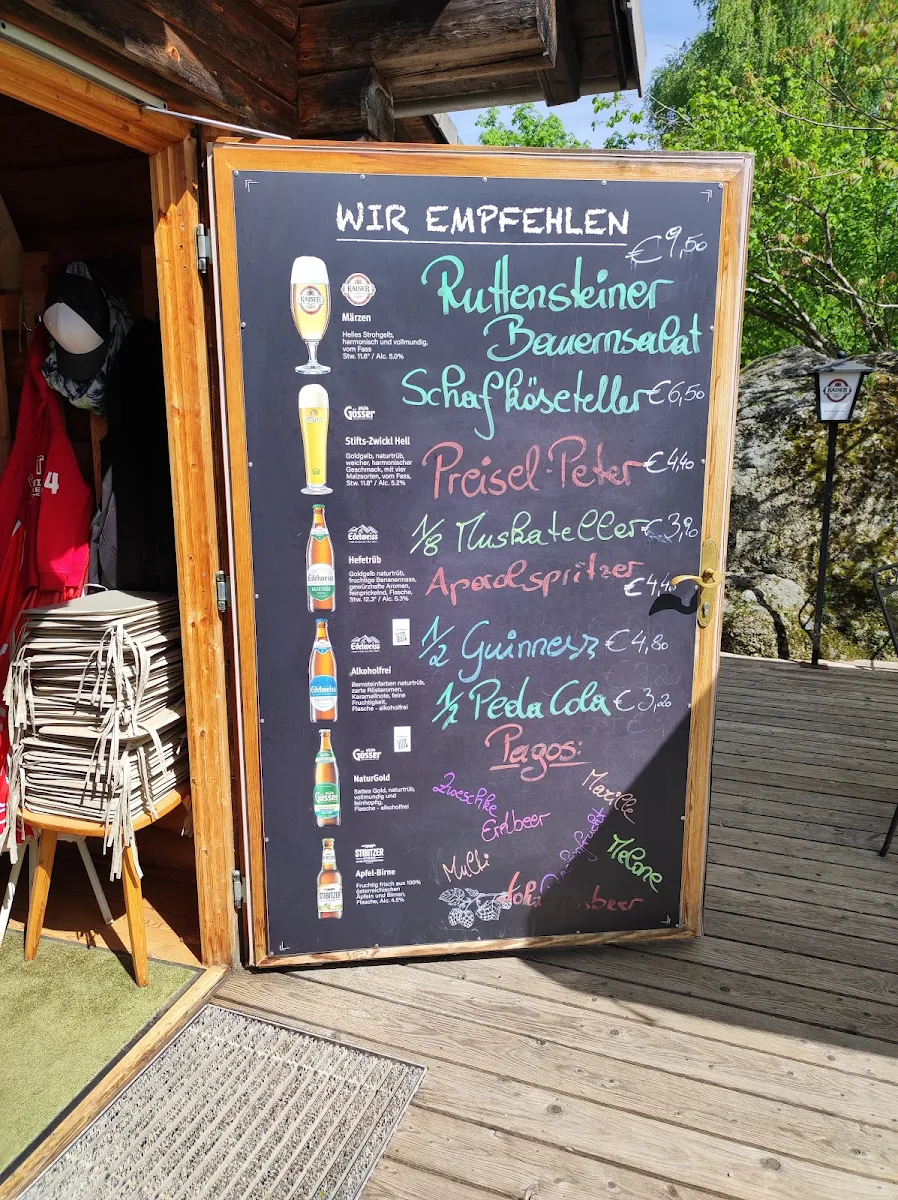 WIR EMPFEHLEN
KAISER
Märzen
Helles Strohgelb,
harmonisch und vollmundig,
vom Fass
Stw. 11.8° / Alc. 5.0%
Gösser
Stifts-Zwickl Hell
Goldgelb, naturtrüb,
weicher, harmonischer
Geschmack, mit vier
Malzsorten, vom Fass,
Stw. 11.8° / Alc. 5.2%
Edelweiss
Hefetrüb
Goldgelb naturtrüb,
fruchtige Bananennase,
gewürzhafte Aromen,
feinprickelnd, Flasche,
Stw. 12.3° / Alc. 5.3%
Edelweiss
Alkoholfrei
Bernsteinfarben naturtrüb,
zarte Röstaromen,
Karamelnote, feine
Fruchtigkeit,
Flasche - alkoholfrei
Gösser
NaturGold
Sattes Gold, naturtrüb,
vollmundig und
feinhopfig,
Flasche - alkoholfrei
STIBITZER
Apfel-Birne
Fruchtig frisch aus 100%
österreichischen
Äpfeln und Birnen,
Flasche, Alc. 4.5%
€ 9,50
Ruttensteiner
Bauernsalat
Schafkäseteller € 6,50
Preisel-Peter € 4,40
1/8 Muskateller € 3,90
Aperolspritzer
€ 4,40
1/2 Guinness € 4,80
1/2 Peda Cola € 3,20
Pagos:
Zwetschke
Marille
Erdbeer
Multi
Melone
KAISER
4